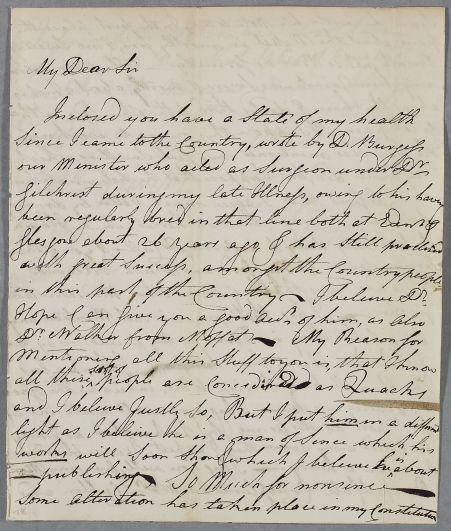 My Dear Sir
Inclosed you have a State of my health
Since I came to the Country, wrote by D. Burgess
our Minister who acted as Surgeon under Dr
Gilchrist during my late Illness, owing to his having
been regularly bred in that line both at Edinr &
Glasgow about 26 years ago & has Still practised
with great Success, amongst the Country people
in this part of the Country — I beleive Dr
Hope Can give you a good acct of him, as also
Dr Walker from Moffat — My Reason for
Mentioning all this Stuff to you is, that I know
all these sort of people are Considered as Quacks
and I beleive Justly So, But I put him in a different
light as I beleive he is a man of Sience which his
works will Soon Show, which I beleive he is about
publishing — So Much for nonsense —
Some alteration has taken place in my Constitution